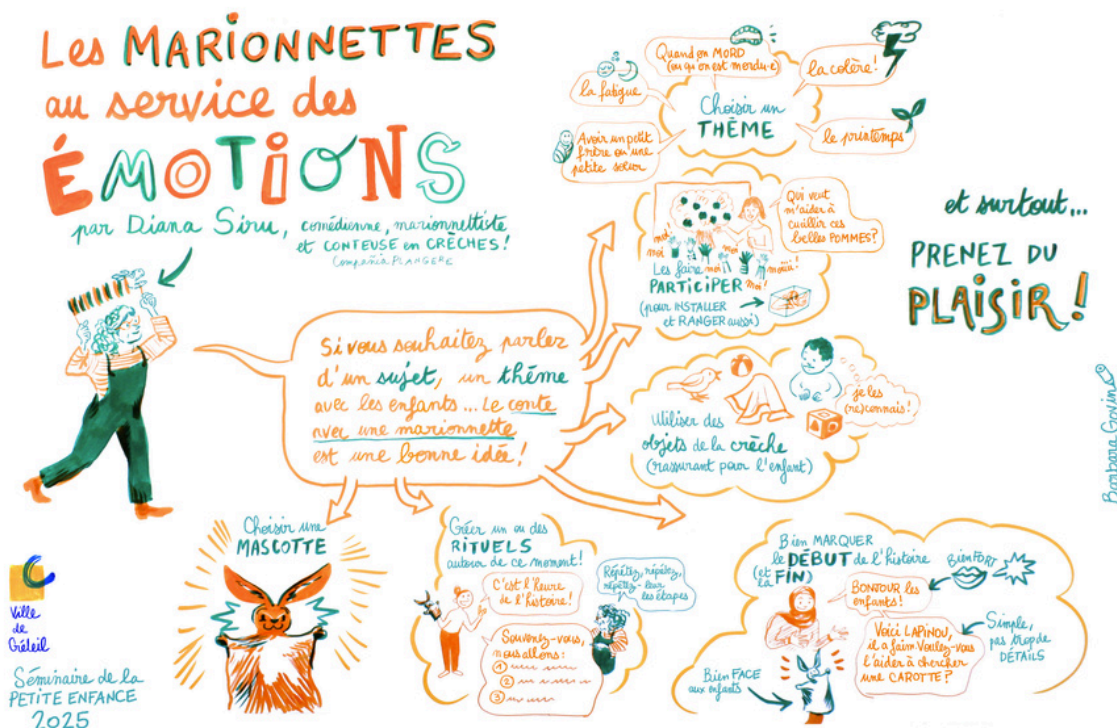 Les MARIONNETTES
au service des
ÉMOTIONS
par Diana Siru, comédienne, marionnettiste
et CONTEUSE en CRÈCHES!
Compañia PLANGERE
Si vous souhaitez parler
d'un sujet, un thème
avec les enfants... Le conte
avec une marionnette
est une bonne idée!
Choisir un
THÈME
la fatigue
Quand on MORD
(ou qu'on est mordu·e)
la colère!
le printemps
Avoir un petit
frère ou une
petite sœur
Qui veut
m'aider à
cueillir ces
belles POMMES?
moi!
moi
moi
moi
moiiii!
moi!
Les faire
PARTICIPER
(pour INSTALLER
et RANGER aussi)
Utiliser des
objets de la crèche
(rassurant pour l'enfant)
je les
(re)connais!
et surtout...
PRENEZ DU
PLAISIR!
Barbara Govin
Choisir une
MASCOTTE
Créer un ou des
RITUELS
autour de ce moment!
C'est l'heure
de l'histoire!
Répétez, répétez,
répétez-leur
les étapes
Souvenez-vous,
nous allons:
1
2
3
Bien MARQUER
le DÉBUT de l'histoire
(et la FIN)
Bien FORT
BONJOUR les
enfants!
Voici LAPINOU,
il a faim. Voulez-vous
l'aider à chercher
une CAROTTE?
Simple,
pas trop de
DÉTAILS
Bien FACE
aux enfants
Ville
de
Créteil
Séminaire de la
PETITE ENFANCE
2025